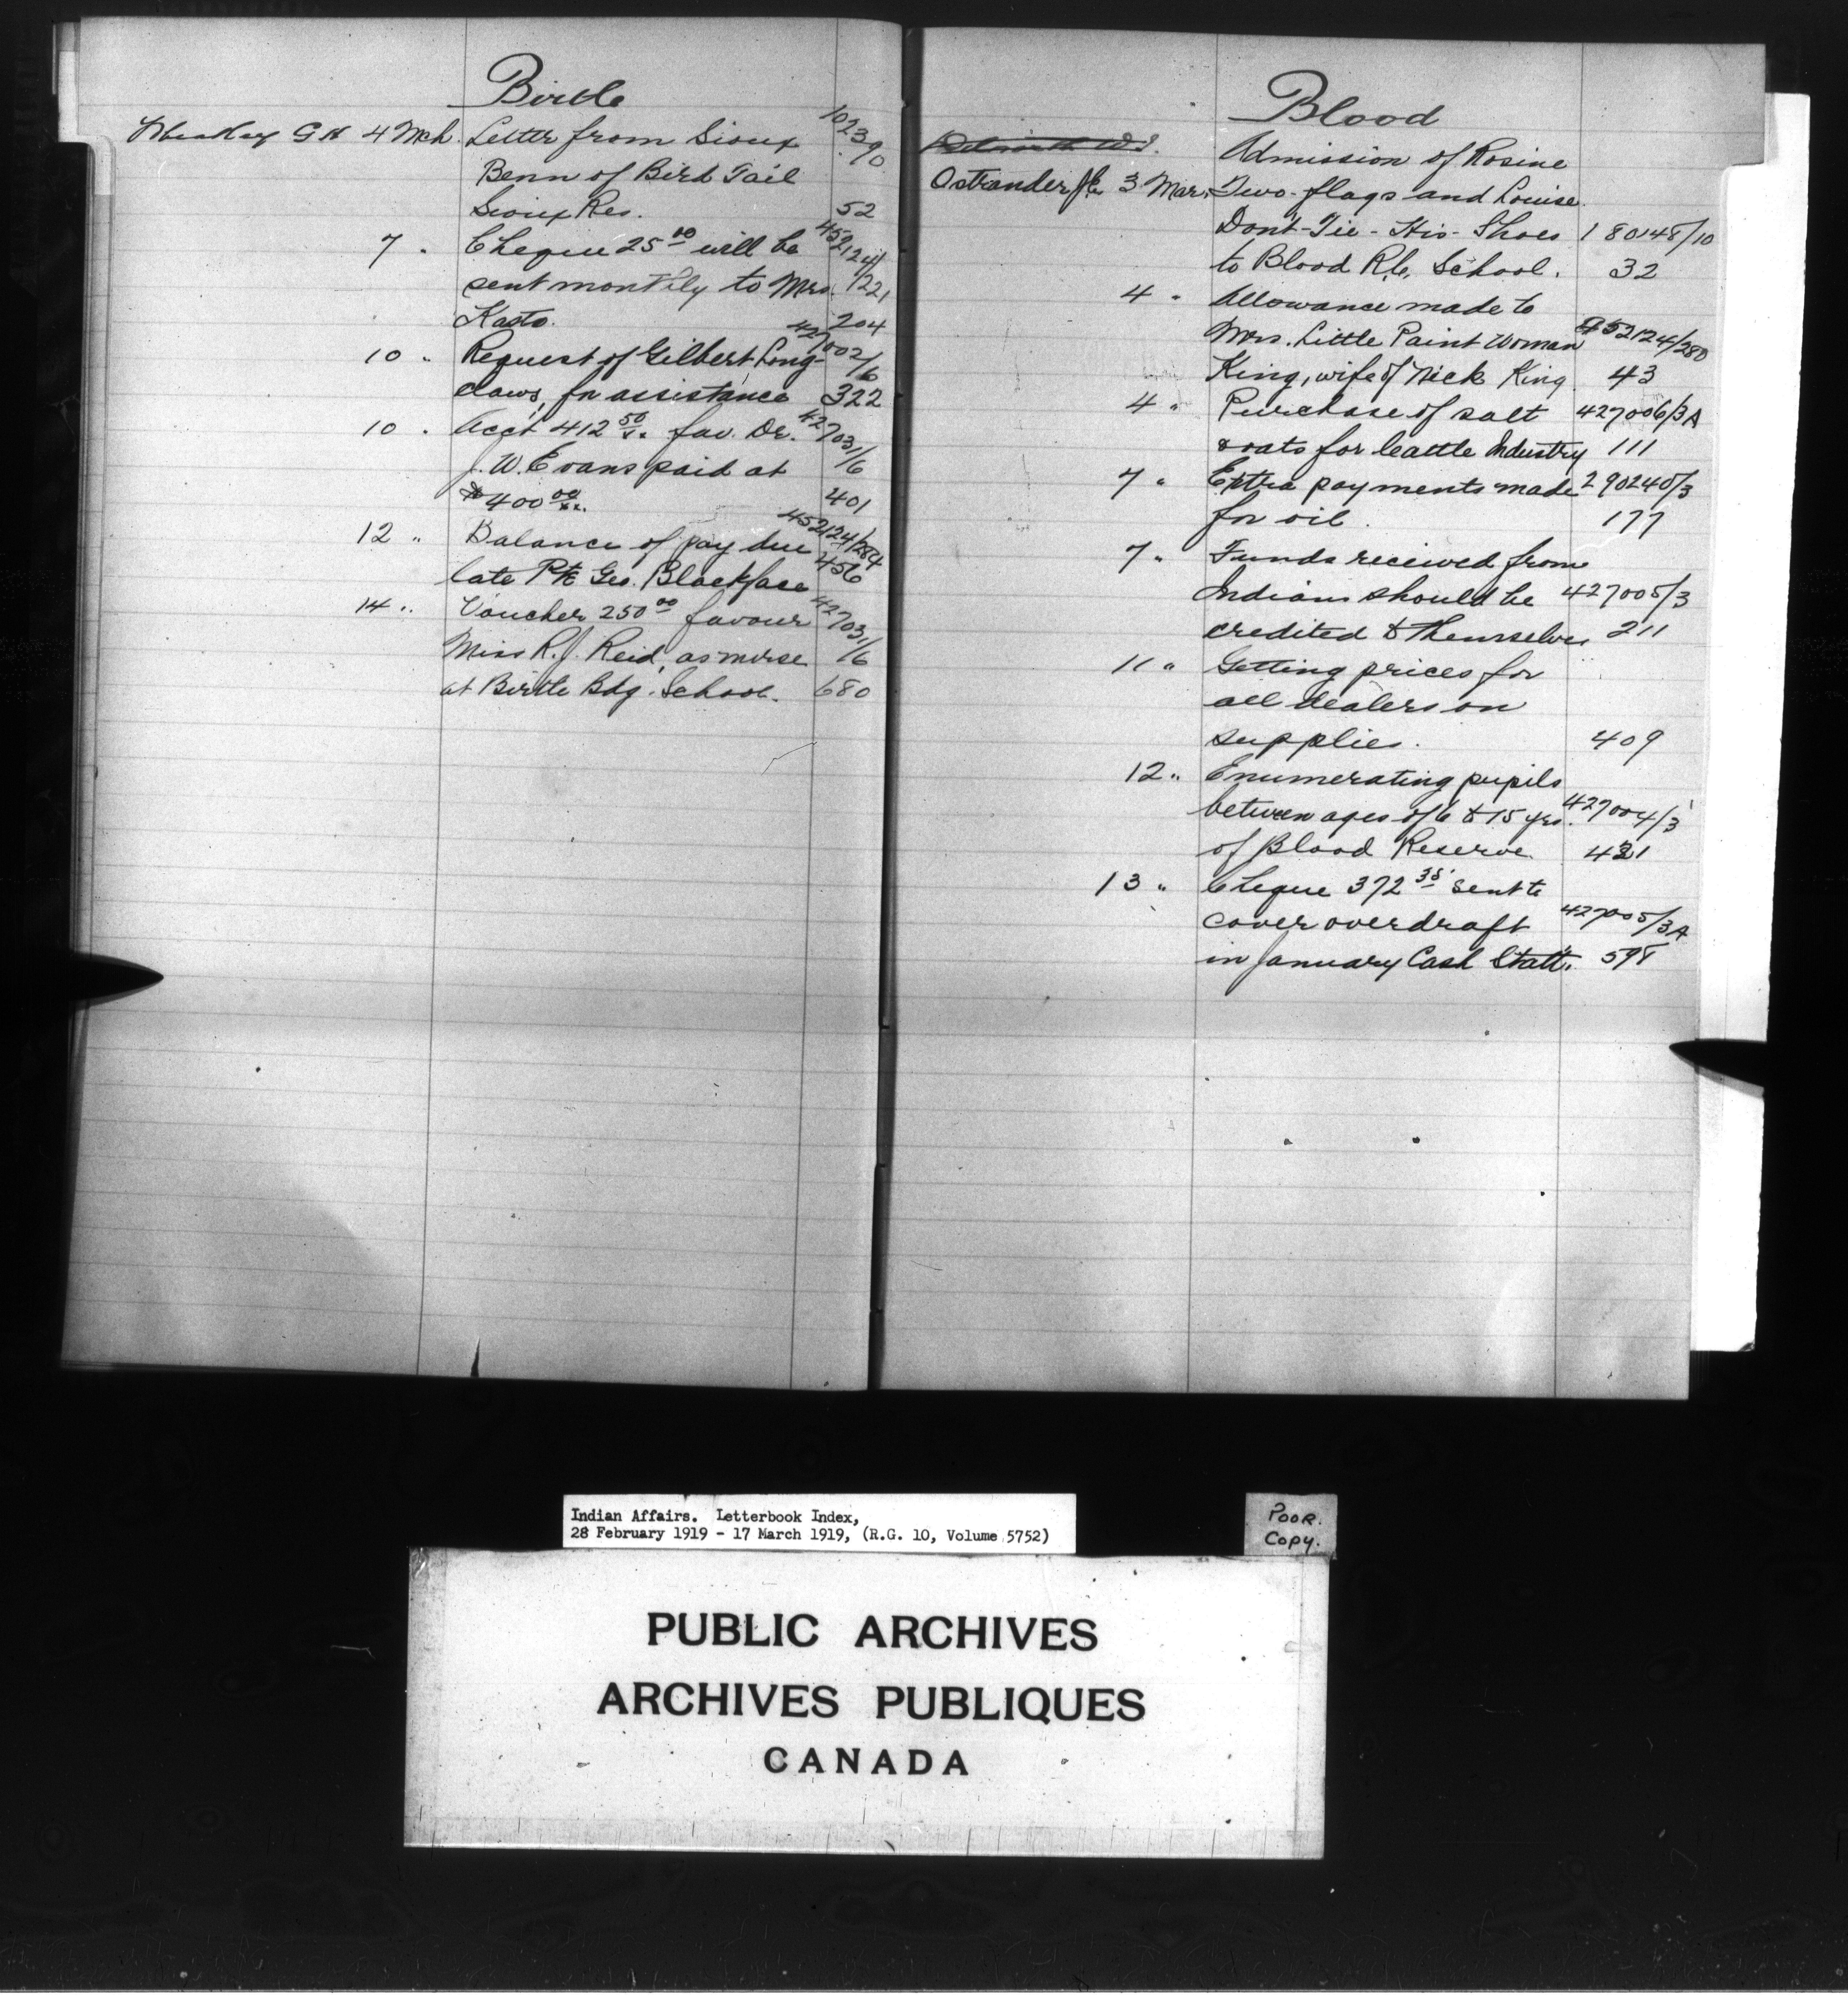 Birtle
G H 4 Mch. Letter from Sioux 10239/0
Benn of Bird Tail
Sioux Res. 52
7 " Cheque 25 00 will be 452124/
sent monthly to Mrs. 1221
Kasto. 204
10 " Request of Gilbert Long- 427002/6
claws, for assistance 322
10 " Acc't 412 50 fav. Dr. 427031/6
J. W. Evans paid at
$400 00 401
12 " Balance of pay due 452124/284
late Pte Geo. Blackface 456
14 " Voucher 250 00 favour 427031/6
Miss R. J. Reid, as nurse
at Birtle Bdg. School. 680
Blood
Admission of Rosine
Ostrander 3 Mar. Two-flags and Louise
Dont-Tie-His-Shoes 180148/10
to Blood R.C. School. 32
4 " Allowance made to
Mrs. Little Paint Woman 452124/280
King, wife of Nick King 43
4 " Purchase of salt 427006/3A
& oats for Cattle Industry 111
7 " Extra payments made 290240/3
for oil. 177
7 " Funds received from
Indians should be 427005/3
credited to themselves 211
11 " Getting prices for
all dealers on
supplies. 409
12 " Enumerating pupils
between ages of 6 & 15 yrs. 427004/3
of Blood Reserve. 431
13 " Cheque 372 35 sent to
cover overdraft 427005/3A
in January Cash Statt. 598
Indian Affairs. Letterbook Index,
28 February 1919 - 17 March 1919, (R.G. 10, Volume 5752)
POOR.
COPY.
PUBLIC ARCHIVES
ARCHIVES PUBLIQUES
CANADA